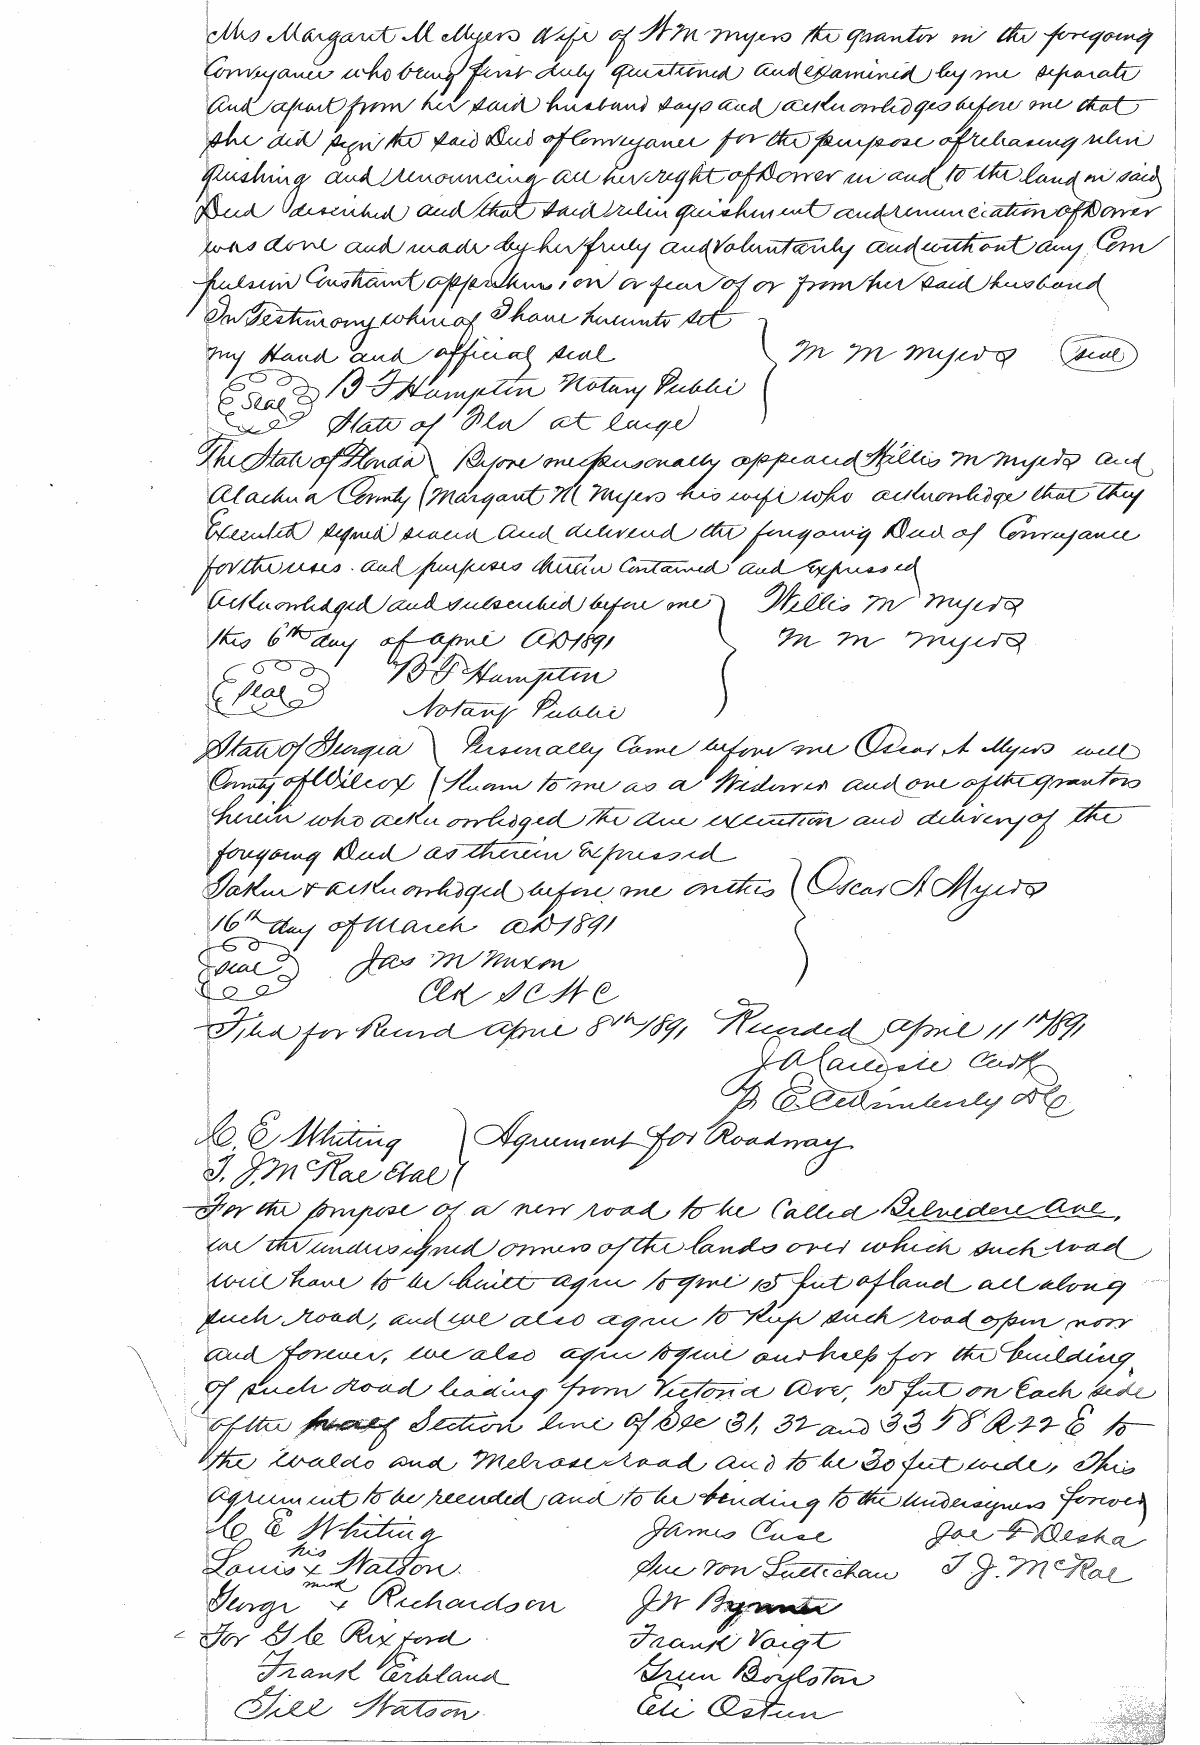 Mrs Margaret M Myers Wife of W M Myers the grantor in the foregoing
Conveyance who being first duly questioned and examined by me separate
and apart from her said husband says and acknowledges before me that
she did sign the said Deed of Conveyance for the purpose of releasing relin
quishing and renouncing all her right of Dower in and to the land in said
Deed described and that said relinquishment and renunciation of Dower
was done and made by her freely and Voluntarily and without any Com
pulsion Constraint apprehension or fear of or from her said husband
In Testimony whereof I have hereunto set
my Hand and official seal } M M Myers (seal)
(Seal) B F Hampton Notary Public
State of Fla at large
The State of Florida } Before me personally appeared Willis M Myers and
Alachua County { Margaret M Myers his wife who acknowledge that they
Executed signed sealed and delivered the foregoing Deed of Conveyance
for the uses and purposes therein Contained and Expressed
Acknowledged and subscribed before me } Willis M Myers
this 6th day of April AD 1891 M M Myers
(Seal) B F Hampton
Notary Public
State of Georgia } Personally Came before me Oscar A Myers well
County of Wilcox { Known to me as a Widower and one of the grantors
herein who acknowledged the due execution and delivery of the
foregoing Deed as therein Expressed
Taken & acknowledged before me on this } Oscar A Myers
16th day of March AD 1891
(Seal) Jas M Nixon
Clk S C W C
Filed for Record April 8th 1891 Recorded April 11th 1891
J A Carlisle Clerk
E C Wimberly D C
C. E Whiting } Agreement for Roadway
T. J. McRae Etal {
For the purpose of a new road to be Called Belvedere Ave,
we the undersigned owners of the lands over which such road
will have to be built agree to give 15 feet of land all along
such road, and we also agree to Keep such road open now
and forever, we also agree to give our help for the building
of such road leading from Victoria Ave, 15 feet on Each side
of the half Section line of Sec 31, 32 and 33 T 8 R 22 E to
the Waldo and Melrose road and to be 30 feet wide, This
agreement to be recorded and to be binding to the Undersigners forever
C E Whiting James Cuse Joe F Desha
Louis his x mark Watson. Sue von Luttichau T J. McRae
George x Richardson J W
For G C Rixford Frank Voigt
Frank Erbland Green Boylston
Gill Watson Eli Osteen